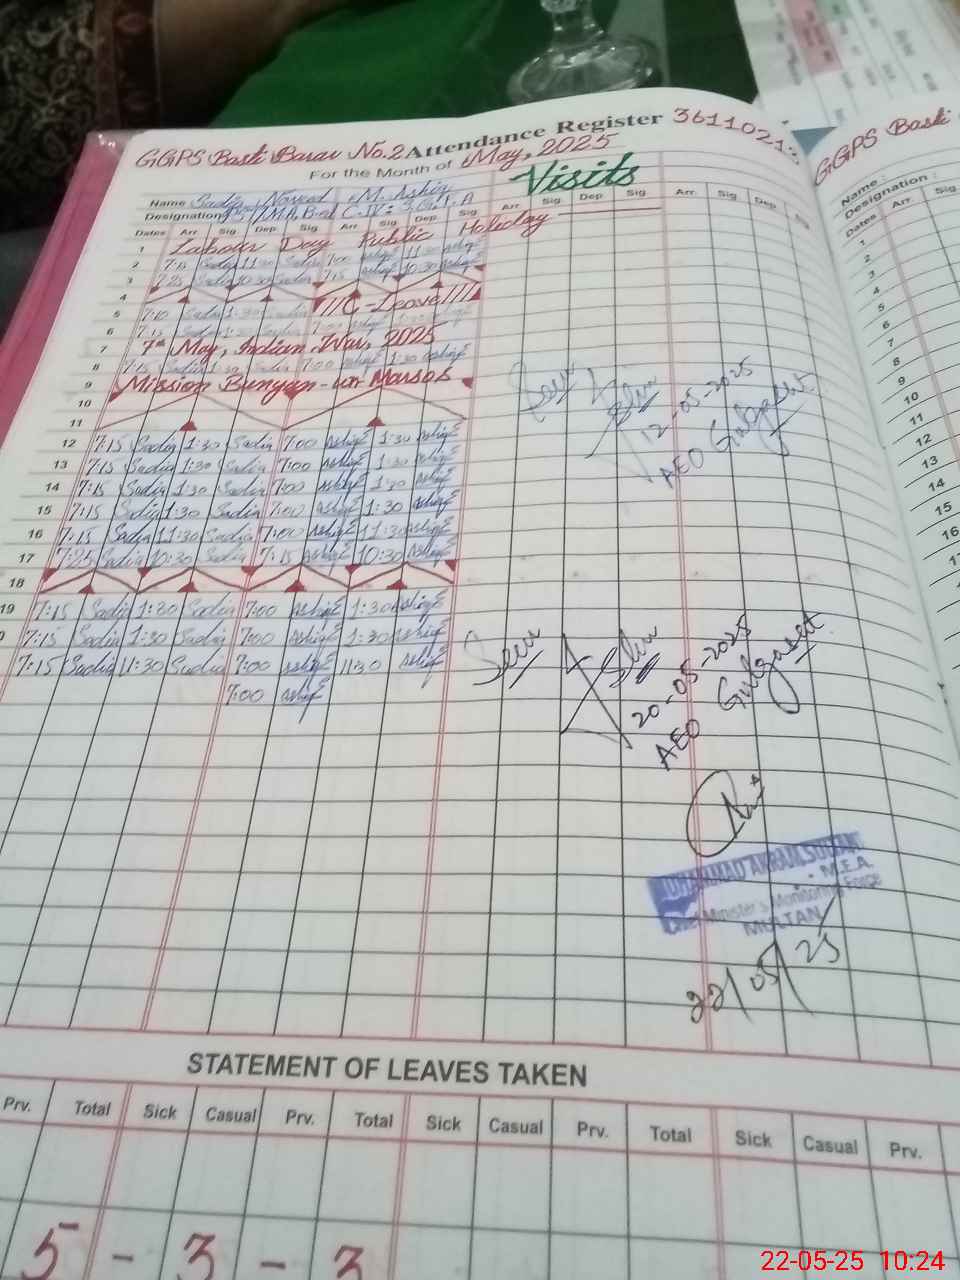 Attendance Register 3611021
GGPS Basti Barar No.2
For the Month of May, 2025
GGPS Basti
Visits
Name Sadia M. Ashiq
Designation
Dates Arr. Sig Dep Sig Arr. Sig Dep Sig Arr. Sig Dep Sig Arr. Sig Dep
Name :
Designation :
Dates Arr. Sig
1 Labour Day Public Holiday
2 7:15 Sadia 11:30 Sadia 7:00 ashiq 11:30 ashiq
3 7:25 Sadia 10:30 Sadia 7:15 ashiq 10:30 ashiq
4
5 7:10 Sadia 1:30 Sadia C-Leave
6 7:15 Sadia 1:30 Sadia 7:00 ashiq 1:30 ashiq
7 7th May, Indian War, 2025
8 7:15 Sadia 1:30 Sadia 7:00 ashiq 1:30 ashiq
9 Mission Bunyan-un-Marsoos
10
11
12 7:15 Sadia 1:30 Sadia 7:00 ashiq 1:30 ashiq
13 7:15 Sadia 1:30 Sadia 7:00 ashiq 1:30 ashiq
14 7:15 Sadia 1:30 Sadia 7:00 ashiq 1:30 ashiq
15 7:15 Sadia 1:30 Sadia 7:00 ashiq 1:30 ashiq
16 7:15 Sadia 11:30 Sadia 7:00 ashiq 11:30 ashiq
17 7:25 Sadia 10:30 Sadia 7:15 ashiq 10:30 ashiq
18
19 7:15 Sadia 1:30 Sadia 7:00 ashiq 1:30 ashiq
7:15 Sadia 1:30 Sadia 7:00 ashiq 1:30 ashiq
7:15 Sadia 11:30 Sadia 7:00 ashiq 11:30 ashiq
7:00 ashiq
Seen
12-05-2025
AEO Gulgasht
Seen
20-05-2025
AEO Gulgasht
MUHAMMAD AKRAM SULTAN
M.E.A.
Chief Minister's Monitoring Force
MULTAN
22/05/25
1
2
3
4
5
6
7
8
9
10
11
12
13
14
15
16
17
STATEMENT OF LEAVES TAKEN
Prv. Total Sick Casual Prv. Total Sick Casual Prv. Total Sick Casual Prv.
5 - 3 - 3
22-05-25 10:24